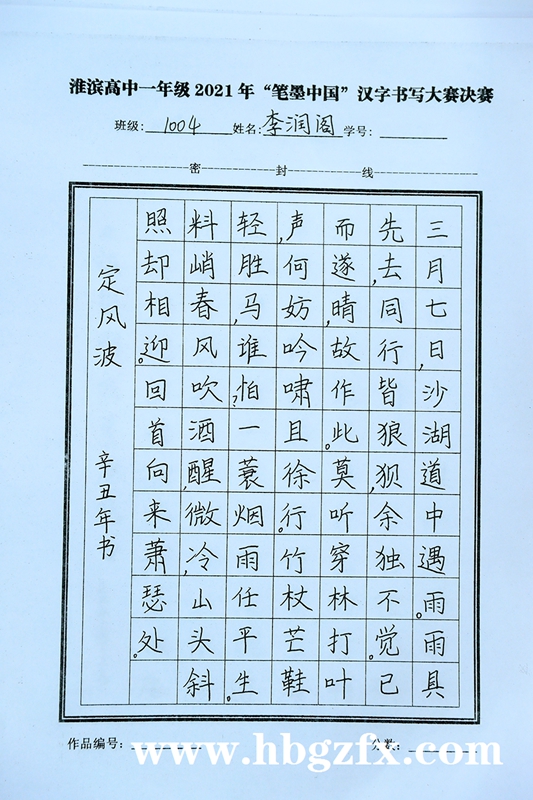 淮滨高中一年级2021年“笔墨中国”汉字书写大赛决赛
班级:1004 姓名:李润阁 学号:
密 封 线
三月七日,沙湖道中遇雨。雨具
先去,同行皆狼狈,余独不觉。已
而遂晴,故作此。莫听穿林打叶
声,何妨吟啸且徐行。竹杖芒鞋
轻胜马,谁怕?一蓑烟雨任平生。
料峭春风吹酒醒,微冷,山头斜
照却相迎。回首向来萧瑟处。
定风波 辛丑年书
作品编号: 分数:
www.hbgzfx.com